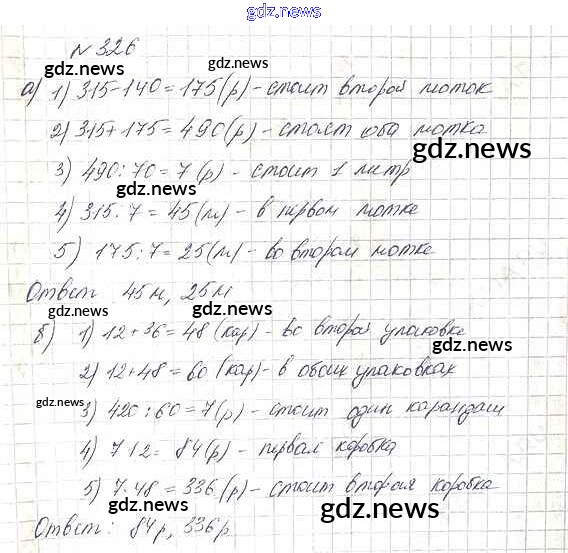 gdz.news
№ 326
gdz.news gdz.news
а) 1) 315-140=175(р) - стоит второй моток
2) 315+175=490(р) - стоят оба мотка
gdz.news
3) 490:70=7(р) - стоит 1 метр
gdz.news
4) 315:7=45(м) - в первом мотке
5) 175:7=25(м) - во втором мотке
Ответ 45м, 25м
gdz.news gdz.news
б) 1) 12+36=48(кар) - во второй упаковке
gdz.news
2) 12+48=60(кар) - в обоих упаковках
gdz.news
3) 420:60=7(р) - стоит один карандаш
gdz.news
4) 7·12=84(р) - первая коробка
5) 7·48=336(р) - стоит вторая коробка
gdz.news gdz.news
Ответ: 84р, 336р